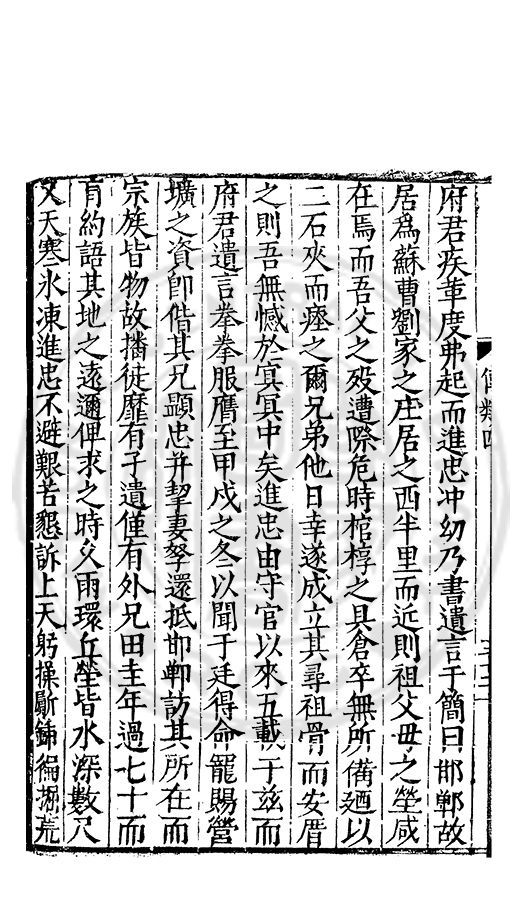 府君疾革度弗起而進忠冲幼乃書遺言于簡曰邯鄲故
居爲蘇曹劉家之庄居之西半里而近則祖父母之塋咸
在焉而吾父之殁遭際危時棺椁之具倉卒無所備廼以
二石夾而瘞之爾兄弟他日幸遂成立其尋祖骨而安厝
之則吾無憾於㝠㝠中矣進忠由守官以來五載于兹而
府君遺言拳拳服膺至甲戍之冬以聞于廷得命寵賜營
壙之資卽偕其兄顯忠并挈妻孥還抵邯鄲訪其所在而
宗族皆物故播徙靡有孑遺僅有外兄田圭年過七十而
肓約語其地之遠邇俾求之時久雨環丘塋皆水深數尺
又天寒氷凍進忠不避艱苦懇訴上天躬操斸鍤徧掘荒